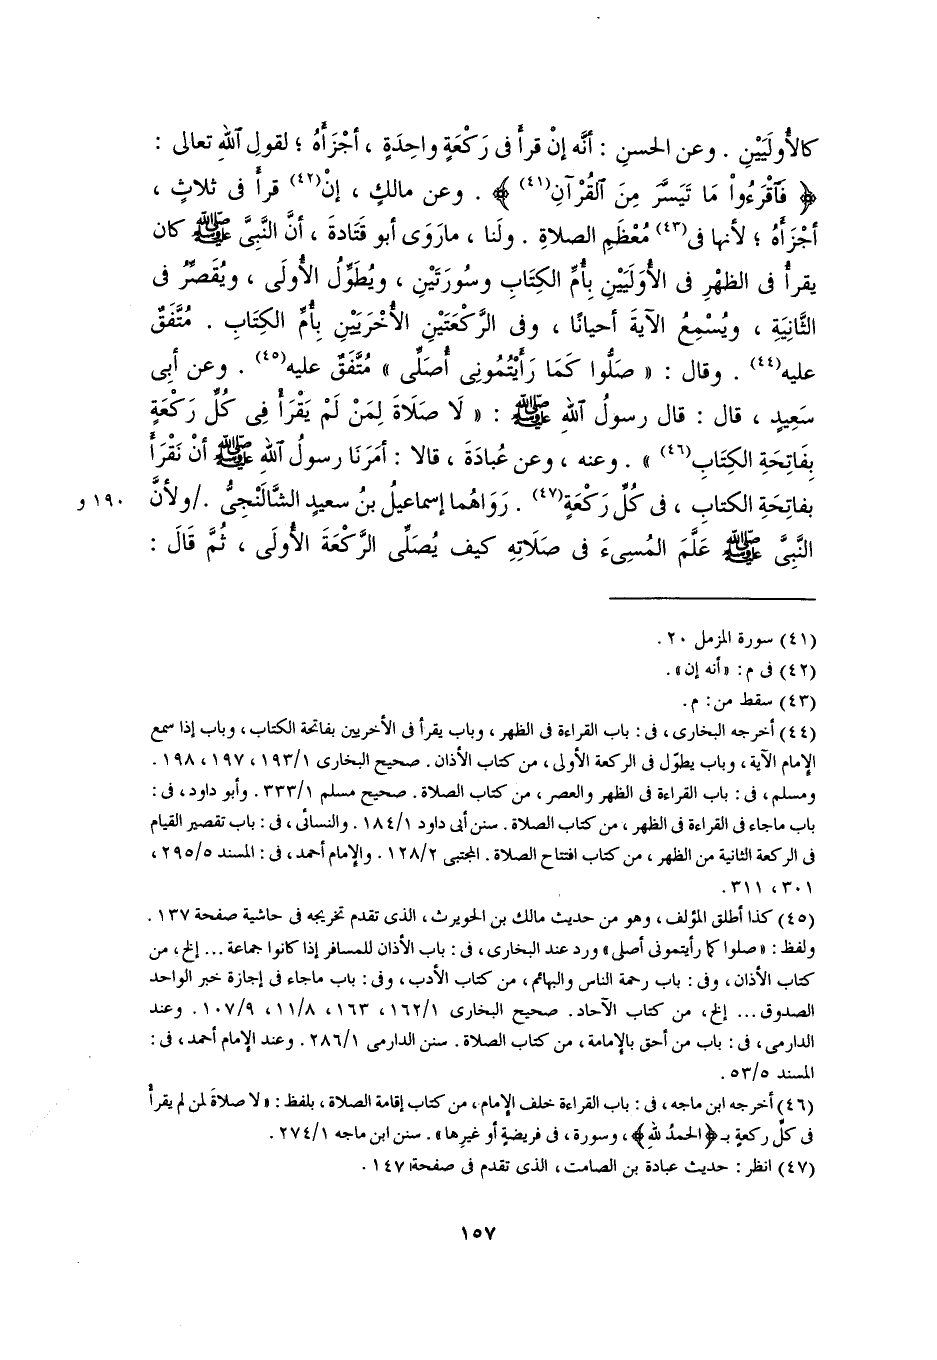 كالأُولَيَيْنِ . وعن الحسنِ : أنَّه إنْ قرأ فى رَكْعَةٍ واحِدَةٍ ، أجْزَأَهُ ؛ لقولِ اللهِ تعالى :
﴿ فَاقْرَءُواْ مَا تَيَسَّرَ مِنَ القُرْآنِ(٤١) ﴾ . وعن مالكٍ ، إنْ(٤٢) قرأ فى ثلاثٍ ،
أجْزَأَهُ ؛ لأنها فى(٤٣) مُعْظَمِ الصلاةِ . ولَنا ، مارَوَى أبو قَتَادةَ ، أنَّ النَّبِىَّ ﷺ كان
يقرأُ فى الظهْرِ فى الأُولَيَيْنِ بِأُمِّ الكِتَابِ وسُورَتَيْنِ ، ويُطَوِّلُ الأُولَى ، ويُقَصِّرُ فى
الثَّانِيَةِ ، ويُسْمِعُ الآيةَ أحيانًا ، وفى الرَّكْعَتَيْنِ الأُخْرَيَيْنِ بِأُمِّ الكِتَابِ . مُتَّفَقٌ
عليه(٤٤) . وقال : « صَلُّوا كَمَا رَأَيْتُمُونِى أُصَلِّى » مُتَّفَقٌ عليه(٤٥) . وعن أبِى
سَعِيدٍ ، قال : قال رسولُ اللهِ ﷺ : « لَا صَلَاةَ لِمَنْ لَمْ يَقْرَأْ فِى كُلِّ رَكْعَةٍ
بِفَاتِحَةِ الكِتَابِ(٤٦) » . وعنه ، وعن عُبادَةَ ، قالا : أمَرَنَا رسولُ اللهِ ﷺ أنْ نَقْرَأَ
بفاتِحَةِ الكتابِ ، فى كُلِّ رَكْعَةٍ(٤٧) . رَوَاهُما إسماعيلُ بنُ سعيدٍ الشَّالَنْجِىُّ ./ولأنَّ ١٩٠ و
النَّبِىَّ ﷺ عَلَّمَ المُسِىءَ فى صَلَاتِهِ كيف يُصَلِّى الرَّكْعَةَ الأُولَى ، ثُمَّ قَالَ :
(٤١) سورة المزمل ٢٠ .
(٤٢) فى م : «أنه إن» .
(٤٣) سقط من : م .
(٤٤) أخرجه البخارى ، فى : باب القراءة فى الظهر ، وباب يقرأ فى الأخريين بفاتحة الكتاب ، وباب إذا سمع
الإمام الآية ، وباب يطوّل فى الركعة الأولى ، من كتاب الأذان . صحيح البخارى ١/١٩٣ ، ١٩٧ ، ١٩٨ .
ومسلم ، فى : باب القراءة فى الظهر والعصر ، من كتاب الصلاة . صحيح مسلم ١/٣٣٣ . وأبو داود ، فى :
باب ماجاء فى القراءة فى الظهر ، من كتاب الصلاة . سنن أبى داود ١/١٨٤ . والنسائى ، فى : باب تقصير القيام
فى الركعة الثانية من الظهر ، من كتاب افتتاح الصلاة . المجتبى ٢/١٢٨ . والإمام أحمد ، فى : المسند ٥/٢٩٥ ،
٣٠١ ، ٣١١ .
(٤٥) كذا أطلق المؤلف ، وهو من حديث مالك بن الحويرث ، الذى تقدم تخريجه فى حاشية صفحة ١٣٧ .
ولفظ : «صلوا كما رأيتمونى أصلى» ورد عند البخارى ، فى : باب الأذان للمسافر إذا كانوا جماعة ... إلخ ، من
كتاب الأذان ، وفى : باب رحمة الناس والبهائم ، من كتاب الأدب ، وفى : باب ماجاء فى إجازة خبر الواحد
الصدوق ... إلخ ، من كتاب الآحاد . صحيح البخارى ١/١٦٢ ، ١٦٣ ، ٨/١١ ، ٩/١٠٧ . وعند
الدارمى ، فى : باب من أحق بالإمامة ، من كتاب الصلاة . سنن الدارمى ١/٢٨٦ . وعند الإمام أحمد ، فى :
المسند ٥/٥٣ .
(٤٦) أخرجه ابن ماجه ، فى : باب القراءة خلف الإمام ، من كتاب إقامة الصلاة ، بلفظ : «لا صلاةَ لمن لم يقرأْ
فى كلِّ ركعةٍ بـ﴿الحمدُ للهِ﴾ ، وسورة ، فى فريضةٍ أو غيرِها» . سنن ابن ماجه ١/٢٧٤ .
(٤٧) انظر : حديث عبادة بن الصامت ، الذى تقدم فى صفحة ١٤٧ .
١٥٧